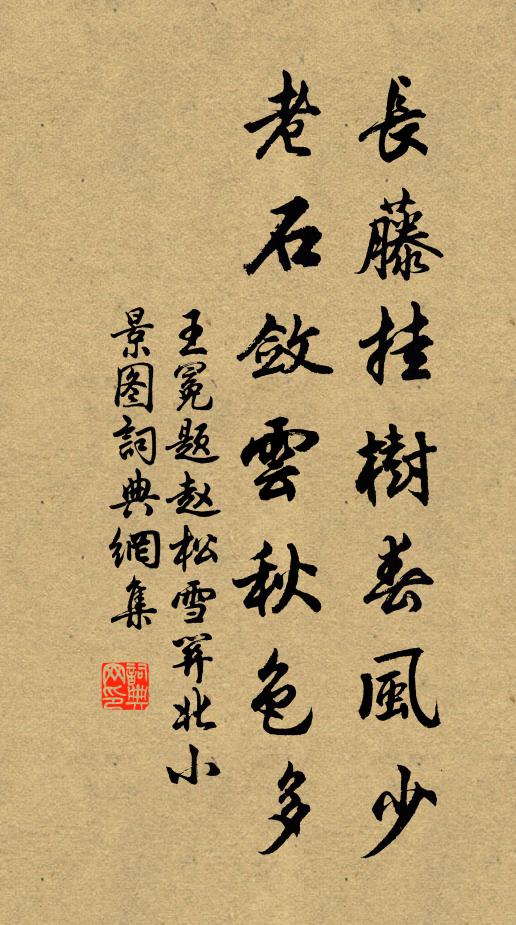 長藤挂樹春風少
老石斂雲秋色多
王冕题赵松雪笄北小
景图詞典網集
詞典
网印